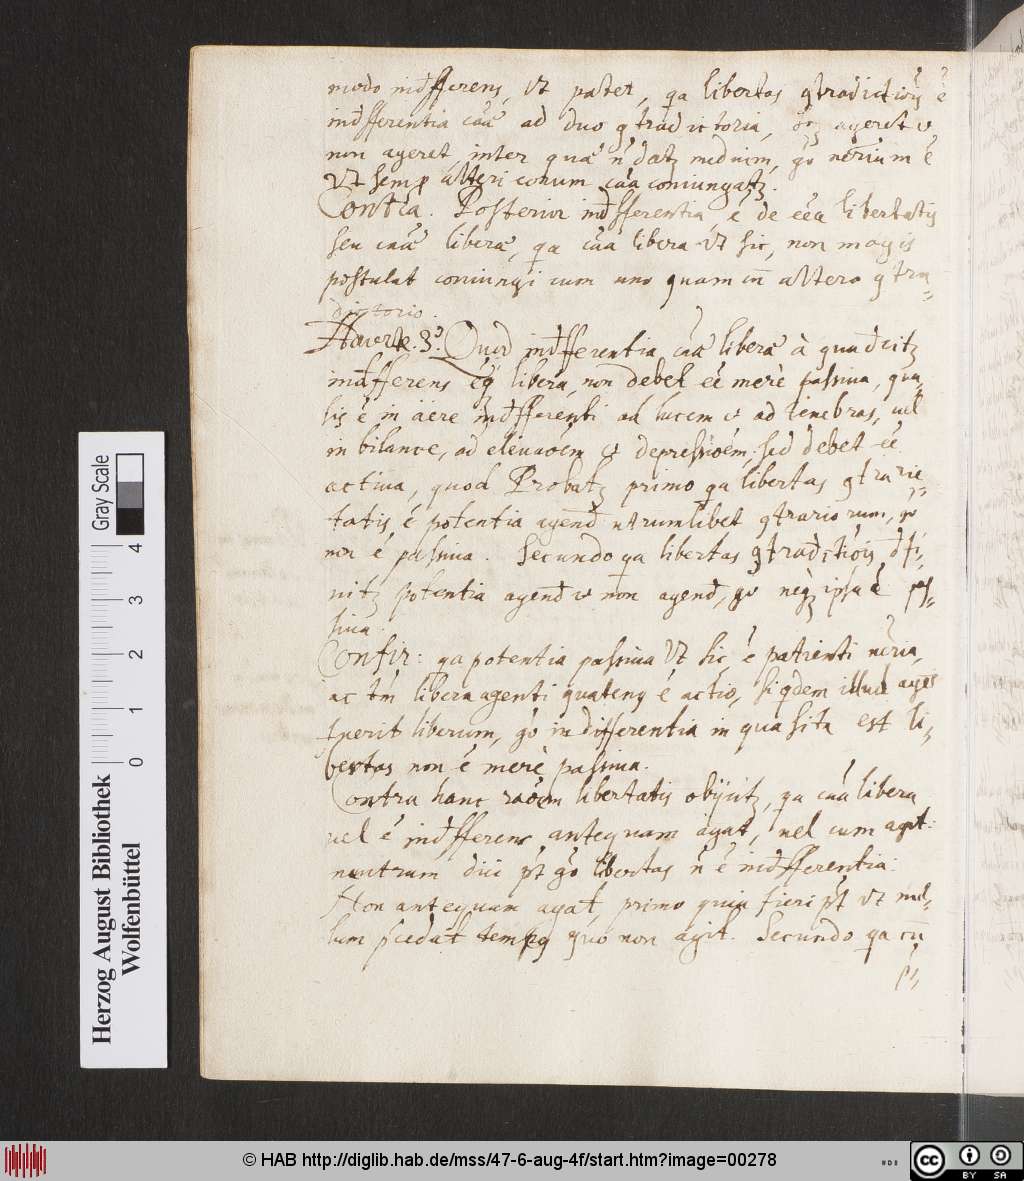 modo indifferens, vt patet, qa libertas 9tradictiōis ē
indifferentia caā ad duo 9tradictoria, ageret v
non ageret, inter quā n̄ datz medium, go nēcrium ē
vt semp alteri eorum caā coniungatz.
Contra. Posterior indifferentia ē de eēa libertatis
seu caā liberā, qa caā libera vt sic, non magis
postulat coniungi cum uno quam cū altero 9tra„
dictorio.
Adverte. 3o. Quod indifferentia caā liberā à quā dicitz
indifferens libera, non debet eē merè passiva, qua„
lis ē in aëre indifferenti ad lucem v ad tenebras, vel
in bilance, ad elevaōem v depressioēm, sed debet eē
activa, quod Probatz primo qa libertas 9trarie„
tatis ē potentia agend utrumlibet 9trariorum, go
non ē passiva. Secundo qa libertas 9tradictiōis dfi„
nitz potentia agend v non agend, go neqz ipsa ē pas„
siva.
Confir: qa potentia passiva vt sic, ē patienti nēcria,
ac tm libera agenti quaten9 ē actio, siqdem illud
liberum, go indifferentia in qua sita est li„
bertas non ē merè passiva.
Contra hanc raōem libertatis obijcitz, qa caā libera
vel ē indifferens antequam agat, vel cum agit:
neutrum dici pt go libertas n̄ ē indifferentia.
Non antequam agat, primo quia fieri pt vt nul„
lum pcedat temp9 quo non agit. Secundo qa cū
Gray Scale
0 1 2 3 4
Herzog August Bibliothek
Wolfenbüttel
© HAB http://diglib.hab.de/mss/47-6-aug-4f/start.htm?image=00278
cc BY SA